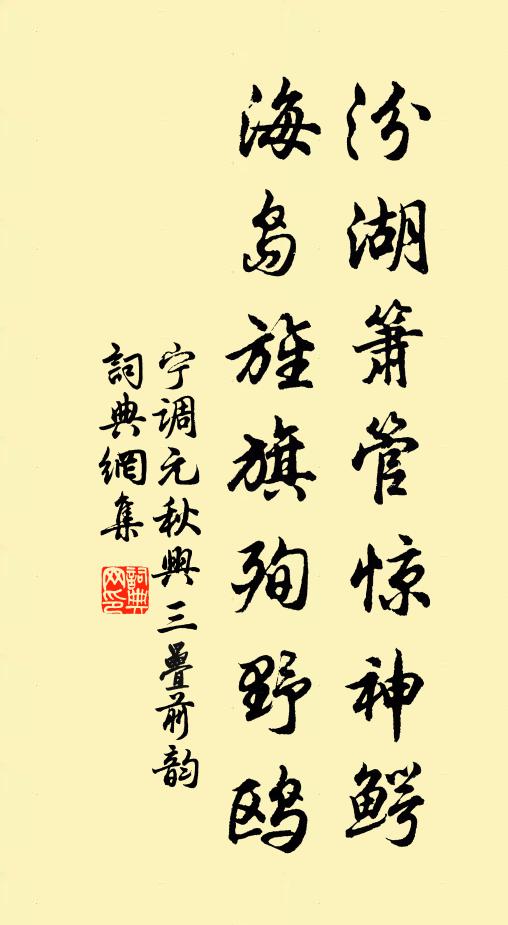 汾湖箫管惊神鳄
海岛旌旗殉野鸥
宁调元秋興三疊前韵
詞典網集
詞典網印